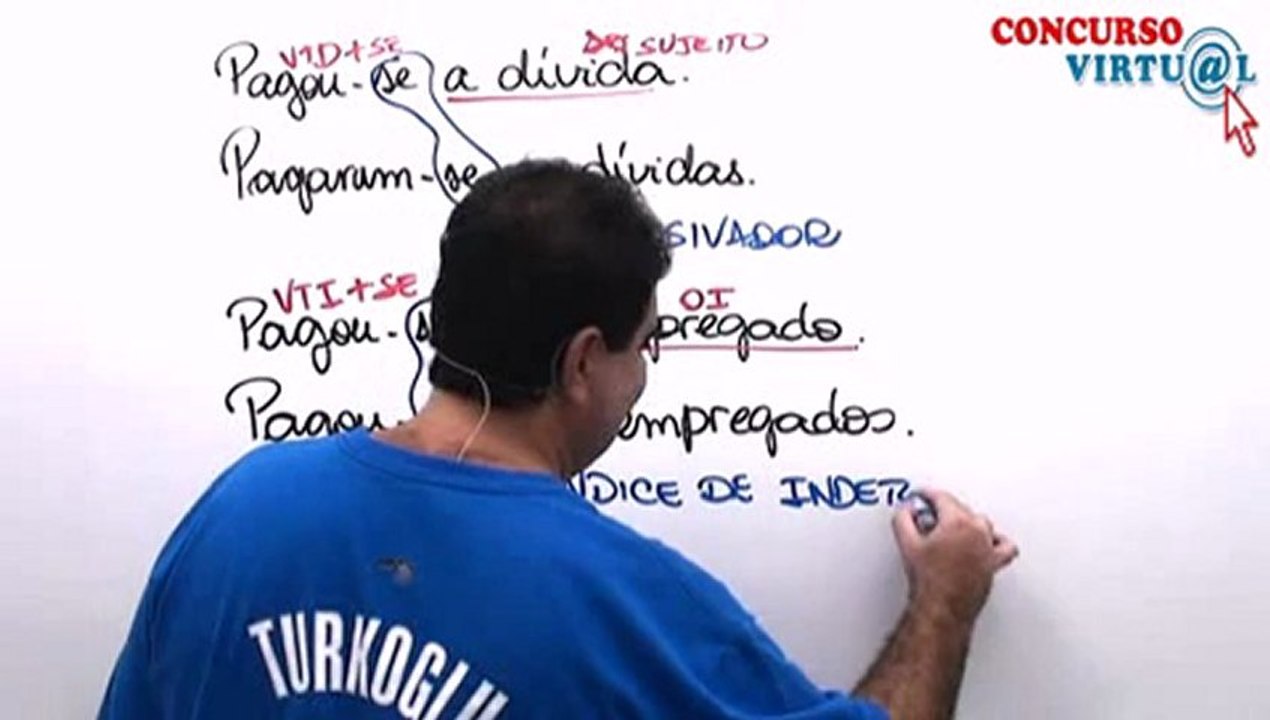 CONCURSO
VIRTU@L
VTD+SE SUJEITO
Pagou-se a dívida.
Pagaram-se dívidas.
SIVADOR
VTI+SE OI
Pagou- pregado.
Pagou- empregados.
NDICE DE INDETER
TURKOGLU